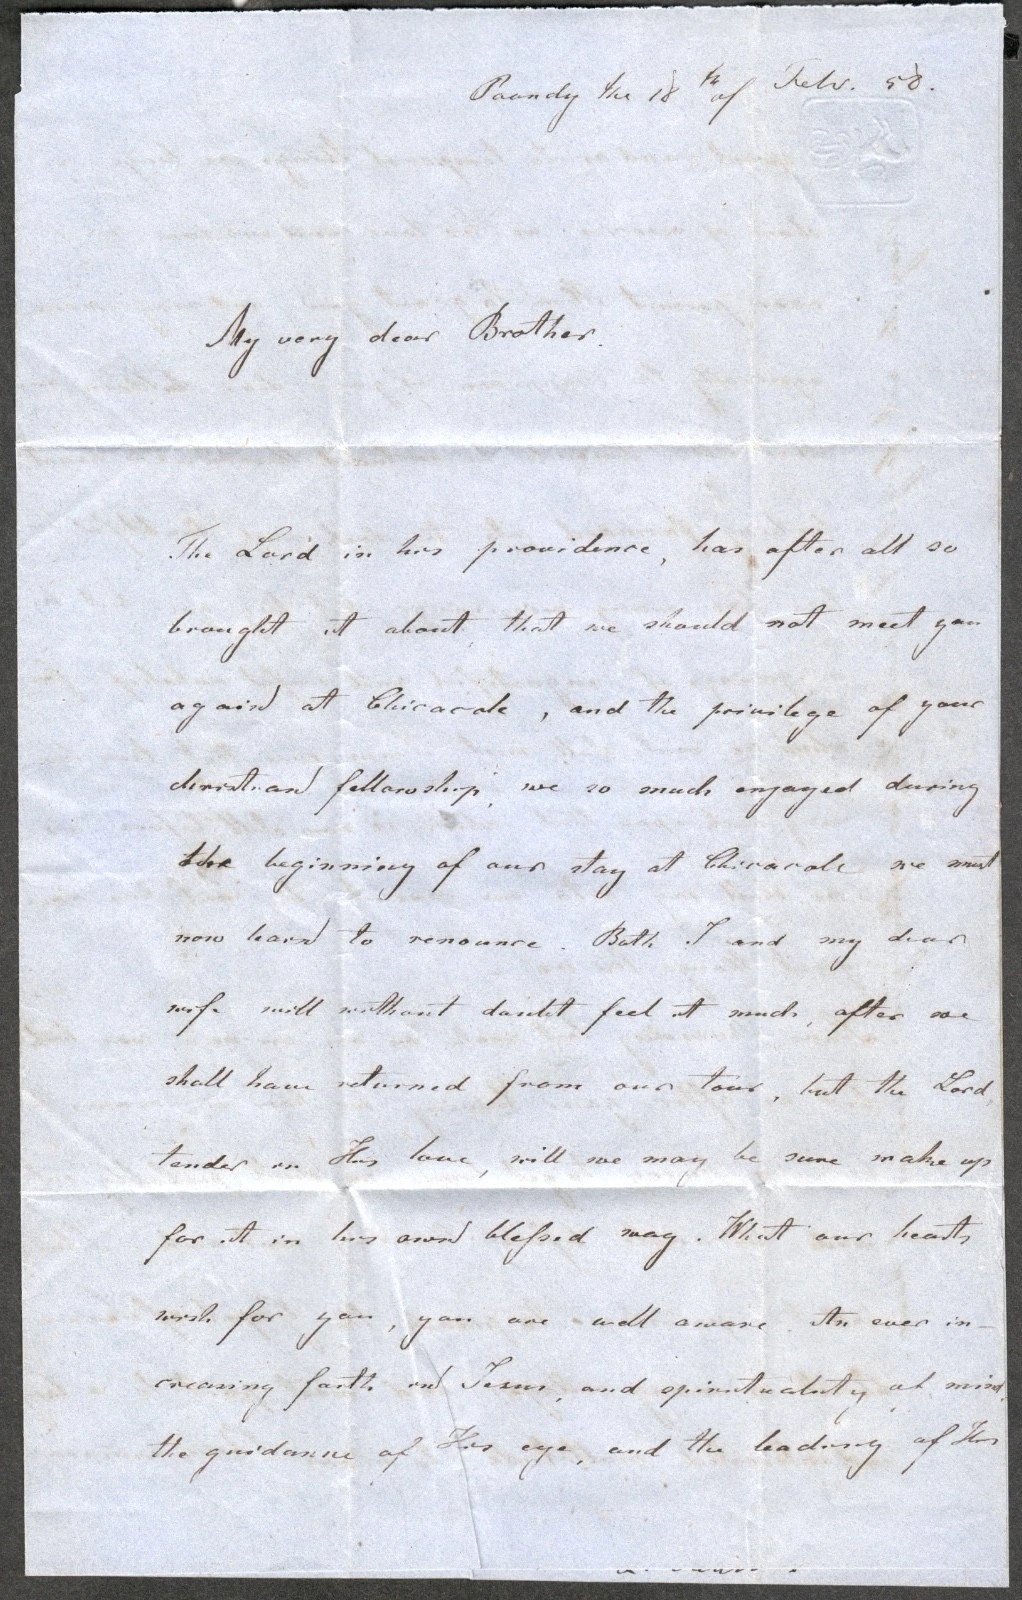 Poondy the 18th of Febr. 58.
My very dear Brother.
The Lord in his providence, has after all so
brought it about that we should not meet you
again at Chicacole, and the privilege of your
christian fellowship, we so much enjoyed during
the beginning of our stay at Chicacole we must
now learn to renounce. Both I and my dear
wife will without doubt feel it much, after we
shall have returned from our tour, but the Lord,
tender in His love, will we may be sure make up
for it in his own blessed way. What our hearts
wish for you, you are well aware. An ever in-
creasing faith in Jesus, and spirituality of mind,
the guidance of His eye, and the leading of His